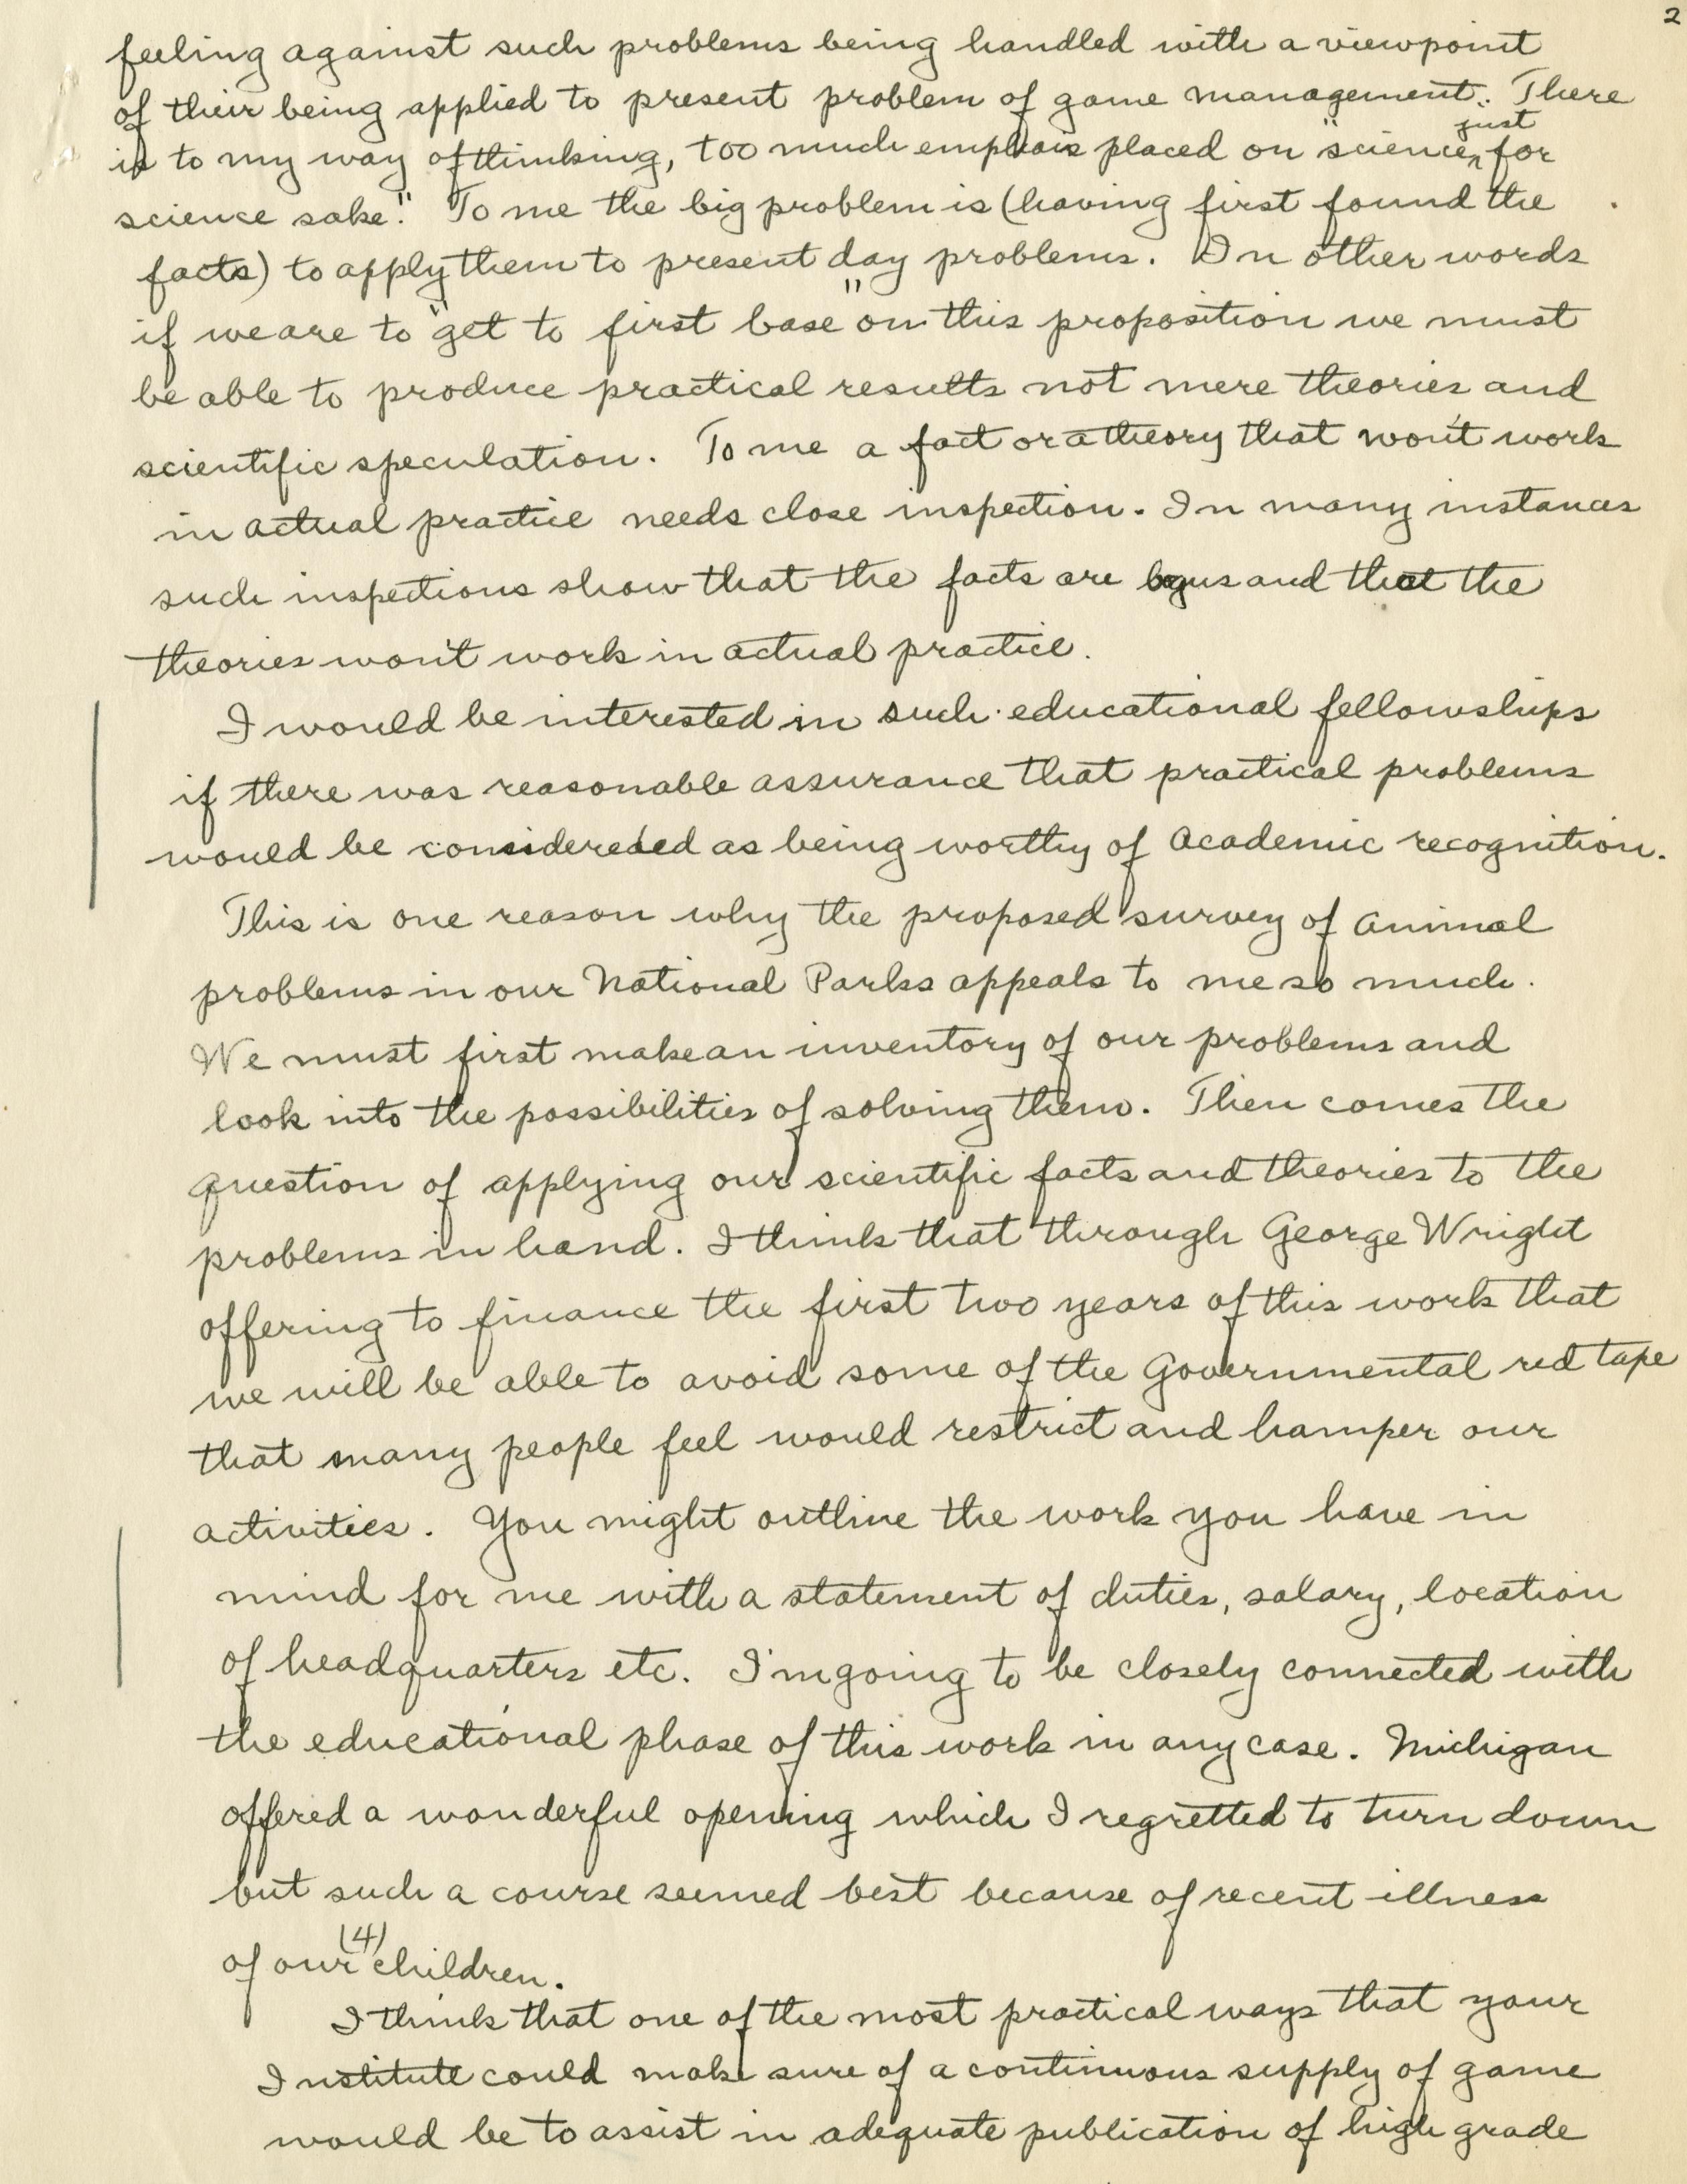 2
feeling against such problems being handled with a viewpoint
of their being applied to present problem of game management. There
is to my way of thinking, too much emphasis placed on "science just for
science sake." To me the big problem is (having first found the
facts) to apply them to present day problems. In other words
if we are to "get to first base" on this proposition we must
be able to produce practical results not mere theories and
scientific speculation. To me a fact or a theory that won't work
in actual practice needs close inspection. In many instances
such inspections show that the facts are bogus and that the
theories won't work in actual practice.
I would be interested in such educational fellowships
if there was reasonable assurance that practical problems
would be considereded as being worthy of Academic recognition.
This is one reason why the proposed survey of animal
problems in our National Parks appeals to me so much.
We must first make an inventory of our problems and
look into the possibilities of solving them. Then comes the
question of applying our scientific facts and theories to the
problems in hand. I think that through George Wright
offering to finance the first two years of this work that
we will be able to avoid some of the Governmental red tape
that many people feel would restrict and hamper our
activities. You might outline the work you have in
mind for me with a statement of duties, salary, location
of headquarters etc. I'm going to be closely connected with
the educational phase of this work in any case. Michigan
offered a wonderful opening which I regretted to turn down
but such a course seemed best because of recent illness
of our (4) children.
I think that one of the most practical ways that your
Institute could make sure of a continuous supply of game
would be to assist in adequate publication of high grade